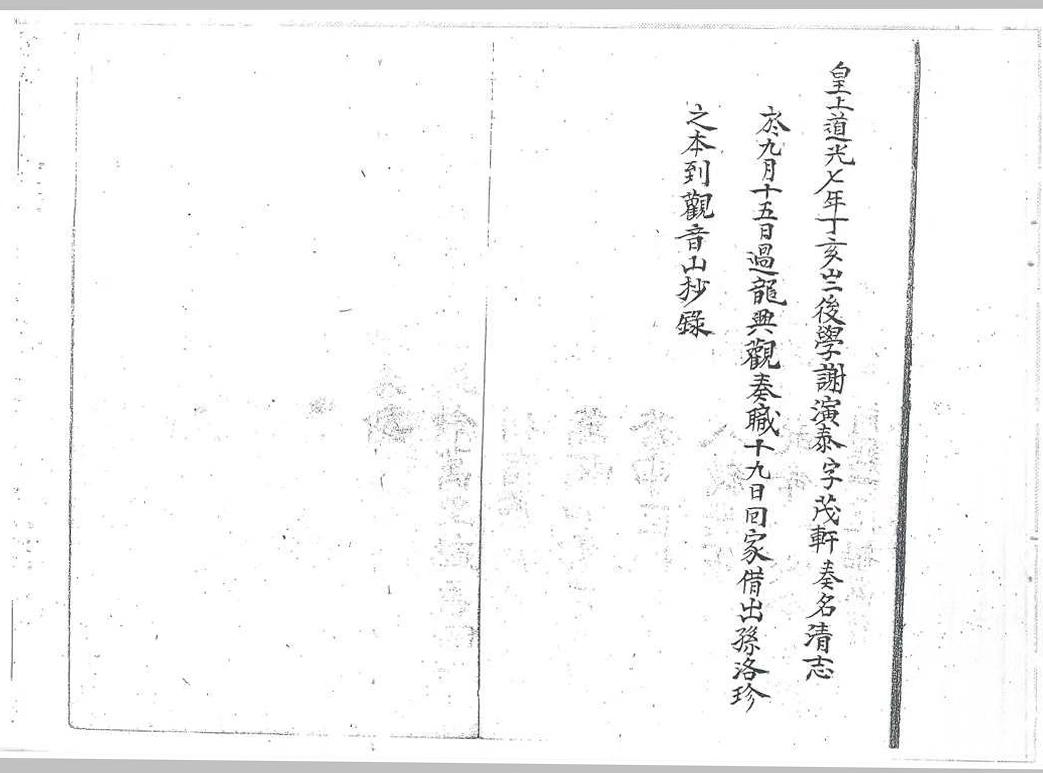 皇上道光七年丁亥歲後學謝演泰字茂軒奏名清志
於九月十五日過龍興觀奏職十九日回家借出孫洛珍
之本到觀音山抄錄